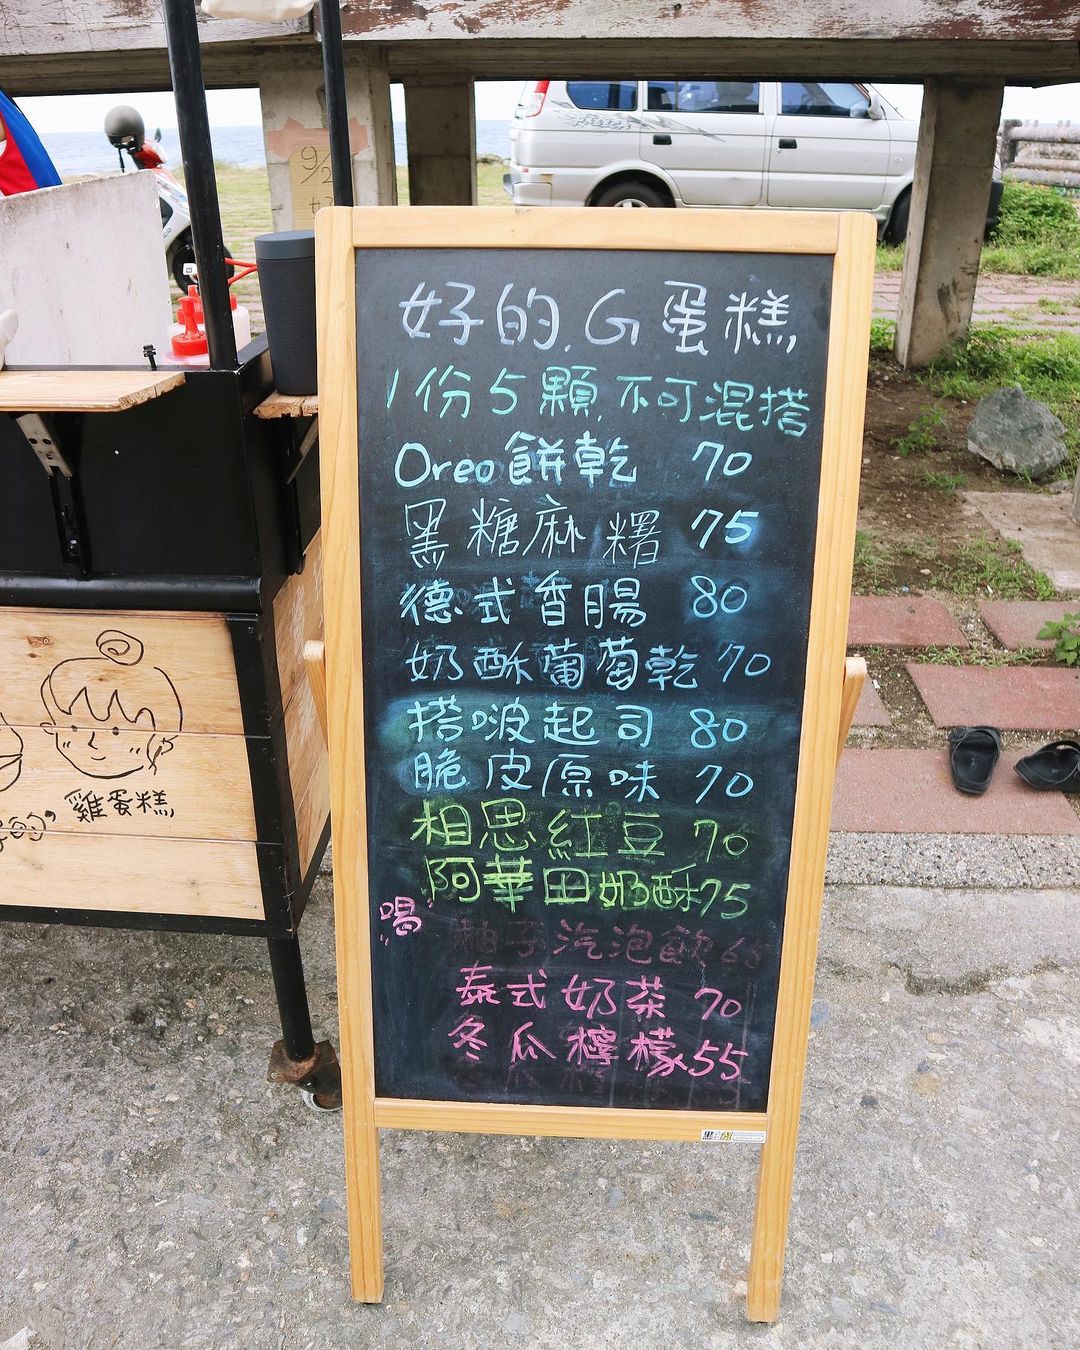 9/2
好的.G蛋糕
1份5顆.不可混搭
Oreo餅乾 70
黑糖麻糬 75
德式香腸 80
奶酥葡萄乾 70
搭啵起司 80
脆皮原味 70
相思紅豆 70
阿華田奶酥 75
"喝"
柚子汽泡飲 65
泰式奶茶 70
冬瓜檸檬 55
的"雞蛋糕